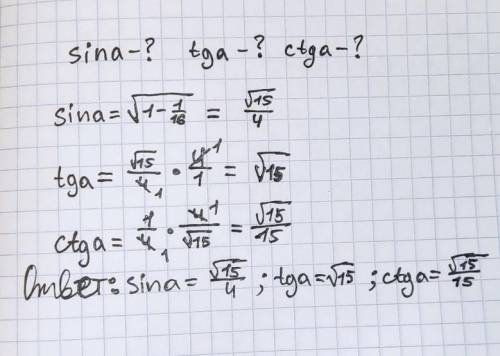 sina-? tga-? ctga-?
sina = √(1 - 1/16) = √15/4
tga = √15/4 · 4/1 = √15
ctga = 1/4 · 4/√15 = √15/15
Ответ: sina = √15/4 ; tga = √15 ; ctga = √15/15